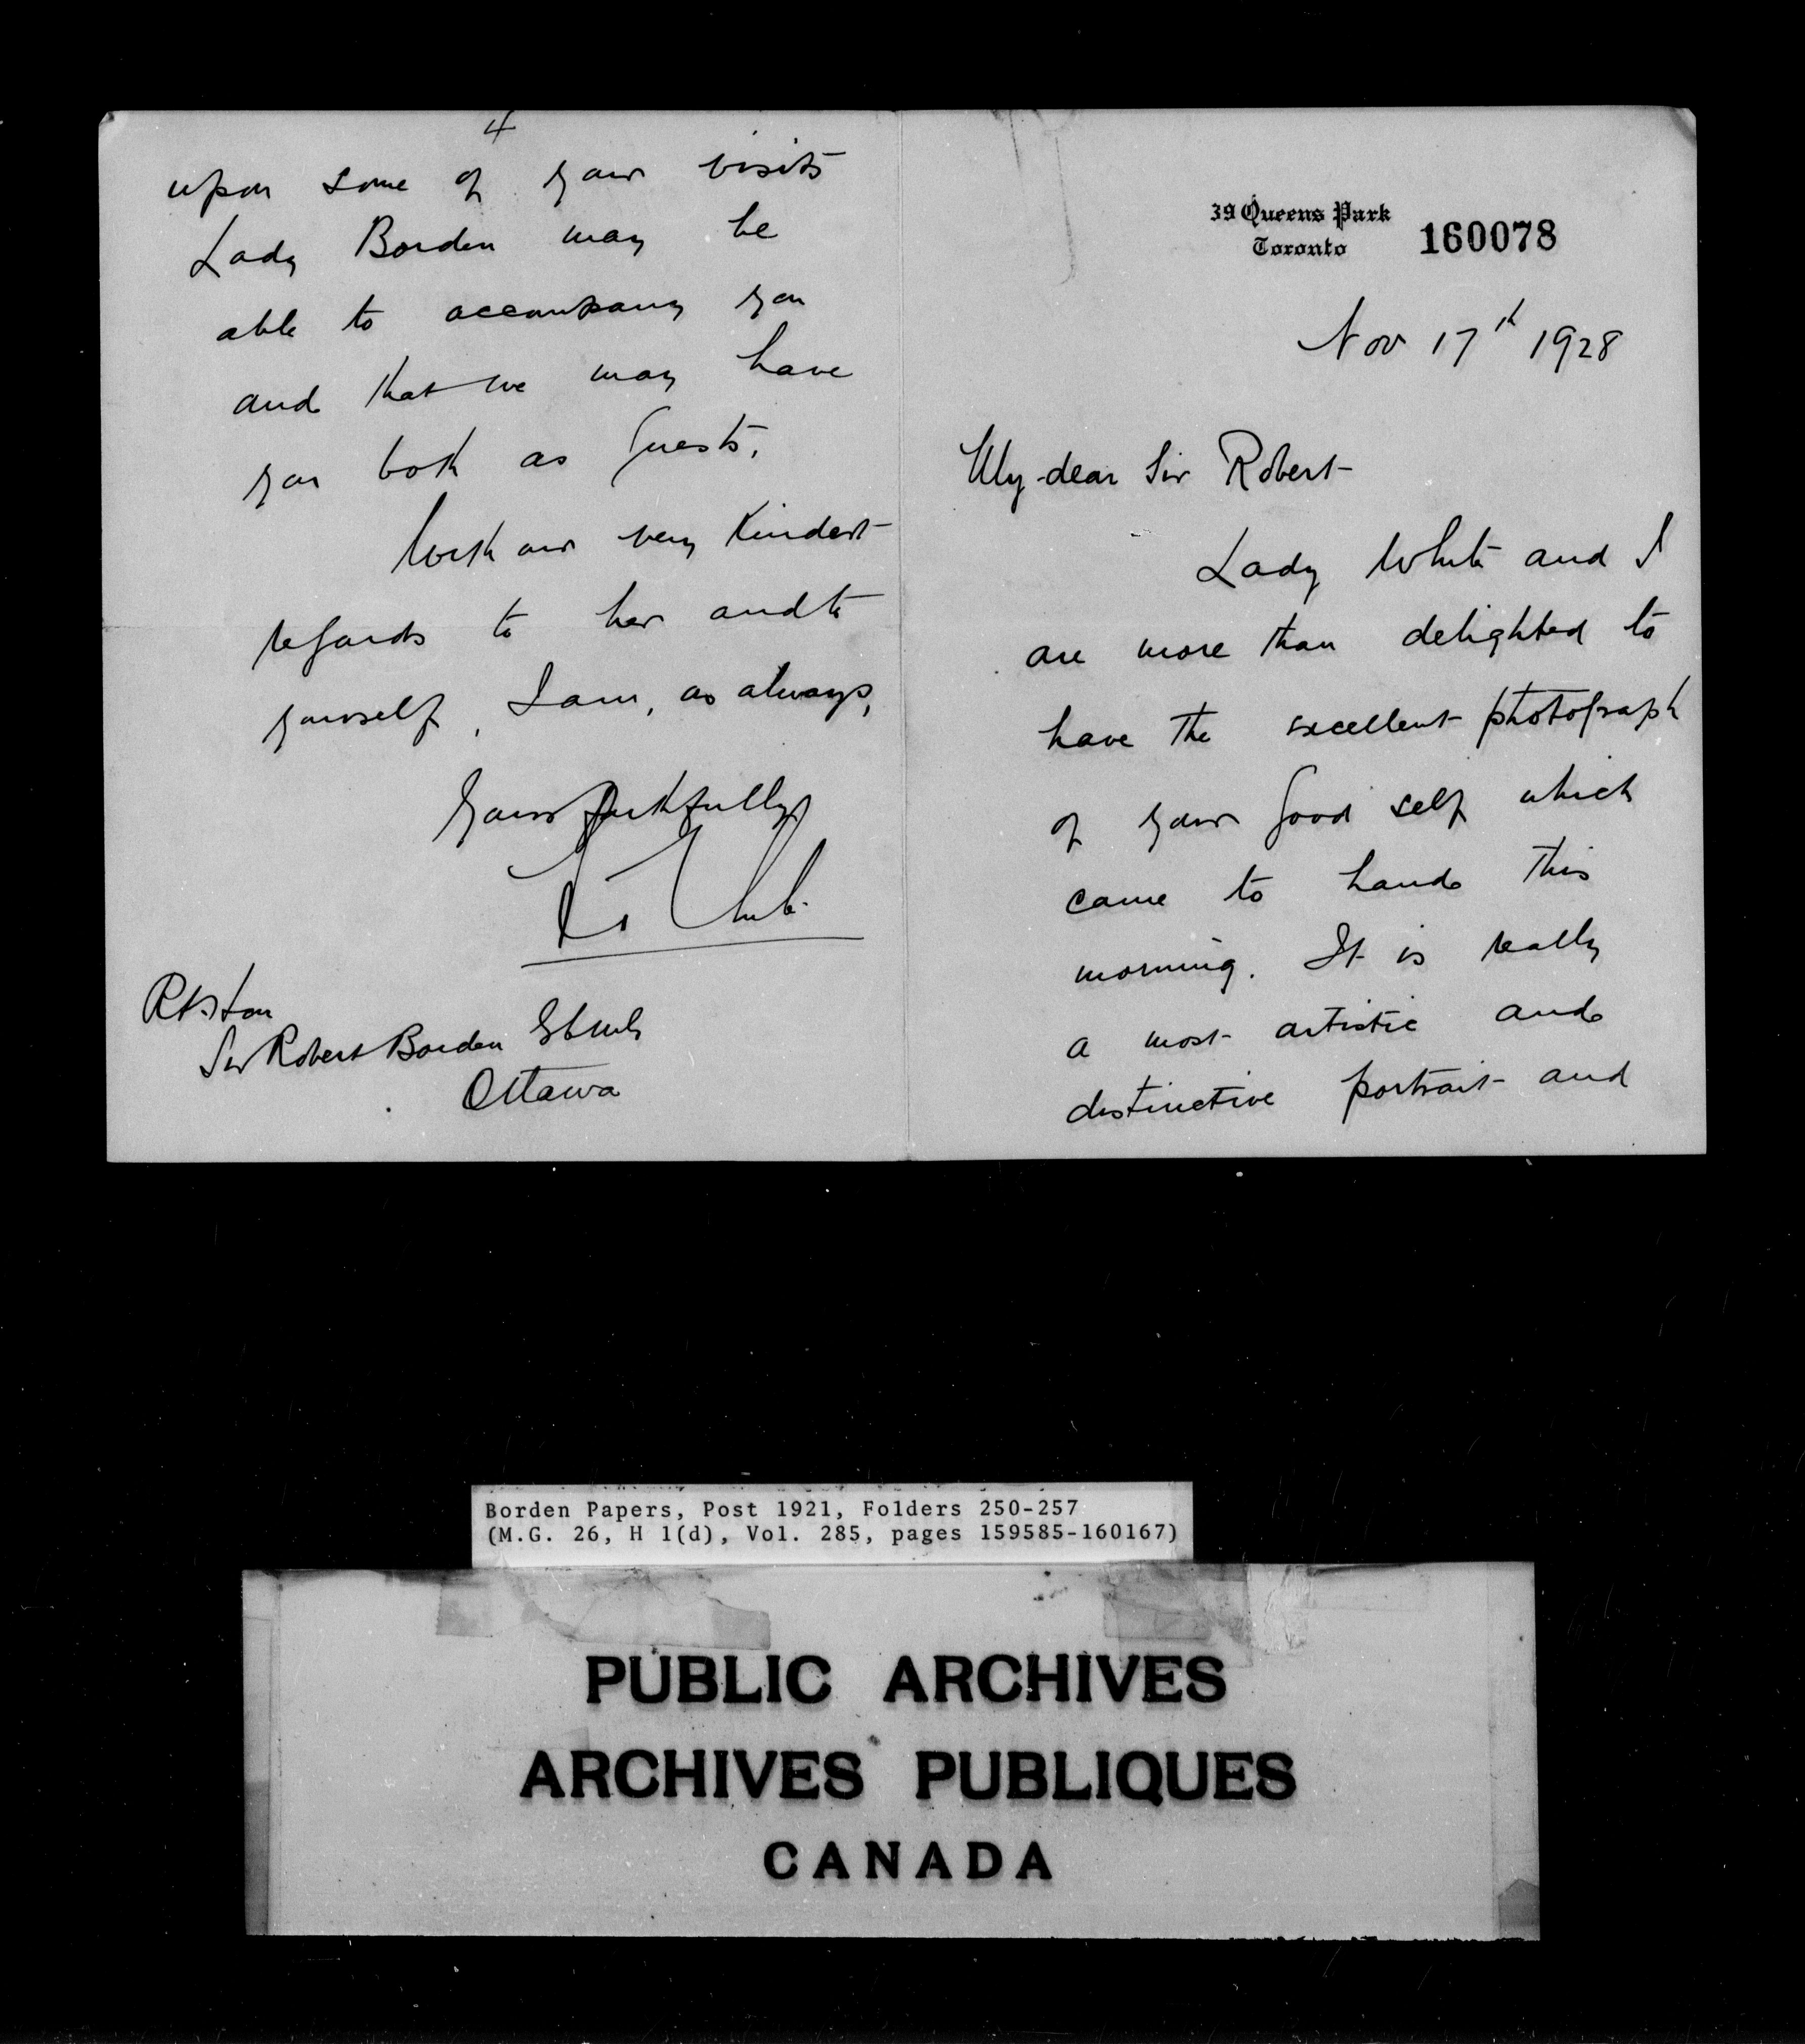 4
upon some of your visits
Lady Borden may be
able to accompany you
and that we may have
you both as guests.
With our very kindest
regards to her and to
yourself, I am, as always,
Yours faithfully
White
Rt Hon
Sir Robert Borden GCMG
Ottawa
39 Queens Park
Toronto
160078
Nov 17th 1928
My dear Sir Robert
Lady White and I
are more than delighted to
have the excellent photograph
of your good self which
came to hand this
morning. It is really
a most artistic and
distinctive portrait and
Borden Papers, Post 1921, Folders 250-257
(M.G. 26, H 1(d), Vol. 285, pages 159585-160167)
PUBLIC ARCHIVES
ARCHIVES PUBLIQUES
CANADA